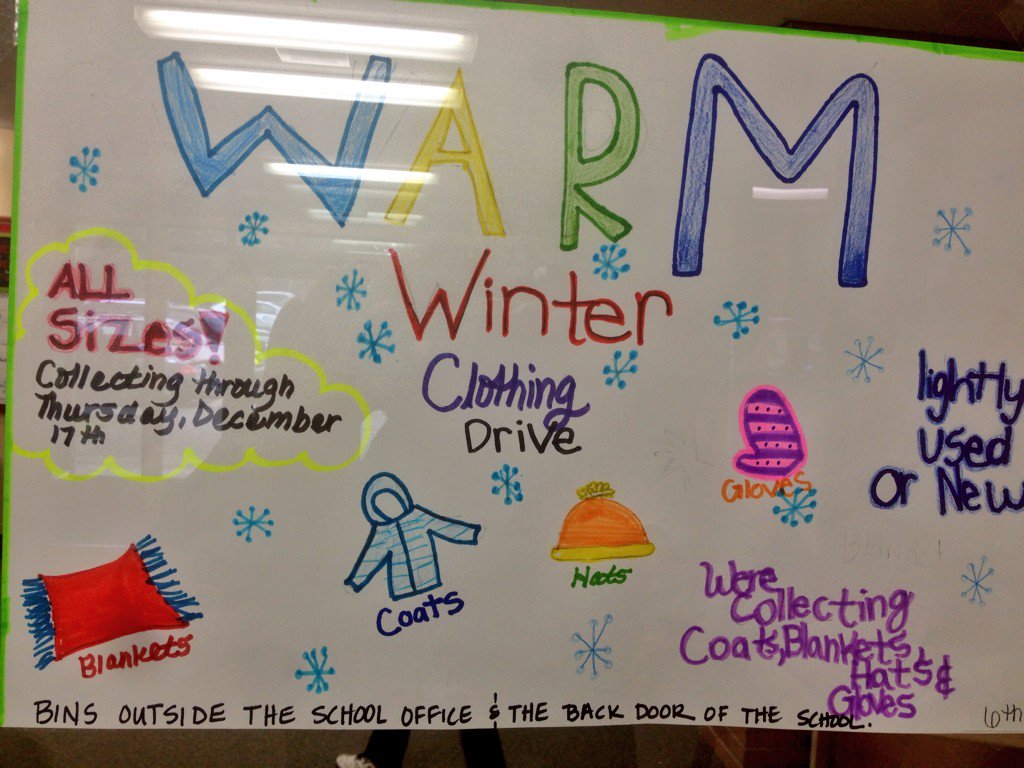 WARM
Winter
Clothing
Drive
ALL
Sizes!
Collecting through
Thursday, December
17th
lightly
used
Or New
Gloves
Blankets
Coats
Hats
Blanket
Were
Collecting
Coats, Blankets,
Hats &
Gloves
BINS OUTSIDE THE SCHOOL OFFICE & THE BACK DOOR OF THE SCHOOL.
6th